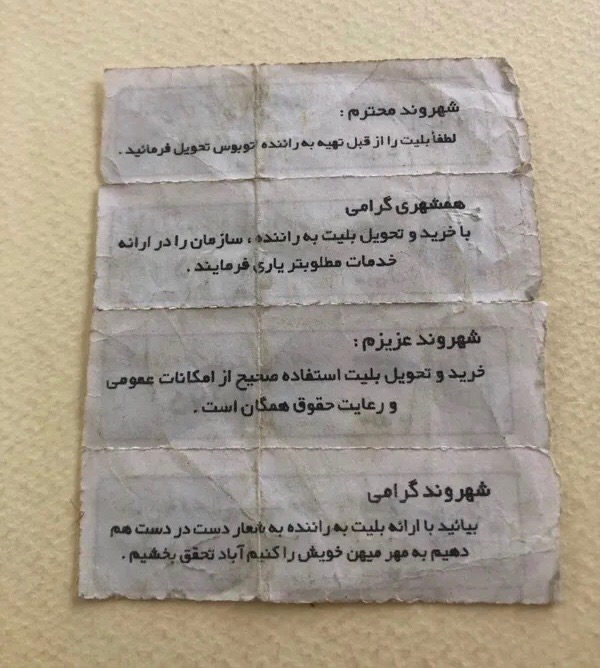 شهروند محترم :
لطفأ بلیت را از قبل تهیه به راننده اتوبوس تحویل فرمائید .
همشهری گرامی
با خرید و تحویل بلیت به راننده ، سازمان را در ارائه
خدمات مطلوبتر یاری فرمایند .
شهروند عزیزم :
خرید و تحویل بلیت استفاده صحیح از امکانات عمومی
و رعایت حقوق همگان است .
شهروند گرامی
بیائید با ارائه بلیت به راننده به شعار دست در دست هم
دهیم به مهر میهن خویش را کنیم آباد تحقق بخشیم .